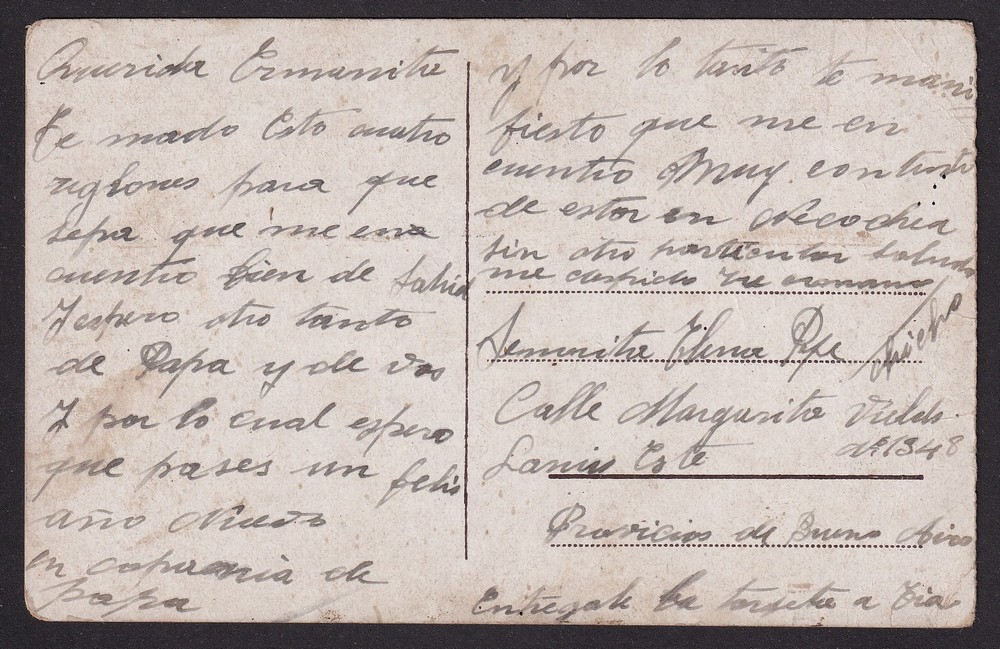 Querida Ermanita
Te mado Esto cuatro
reglones para que
sepa que me en
cuentro bien de Salud
Y espero otro tanto
de Papa y de vos
Y por lo cual espero
que pases un felis
año Nuevo
en copania de
papa
y por lo tanto te mani
fiesto que me en
cuentro Muy contento
de estar en Necochea
sin otro particular saludo
me despido tu ermano
Senorita Elena Pepe
Calle Margarita
nº 1348
Lanus Este
Provicios de Bueno Aires
Entregale la targeta a Tia